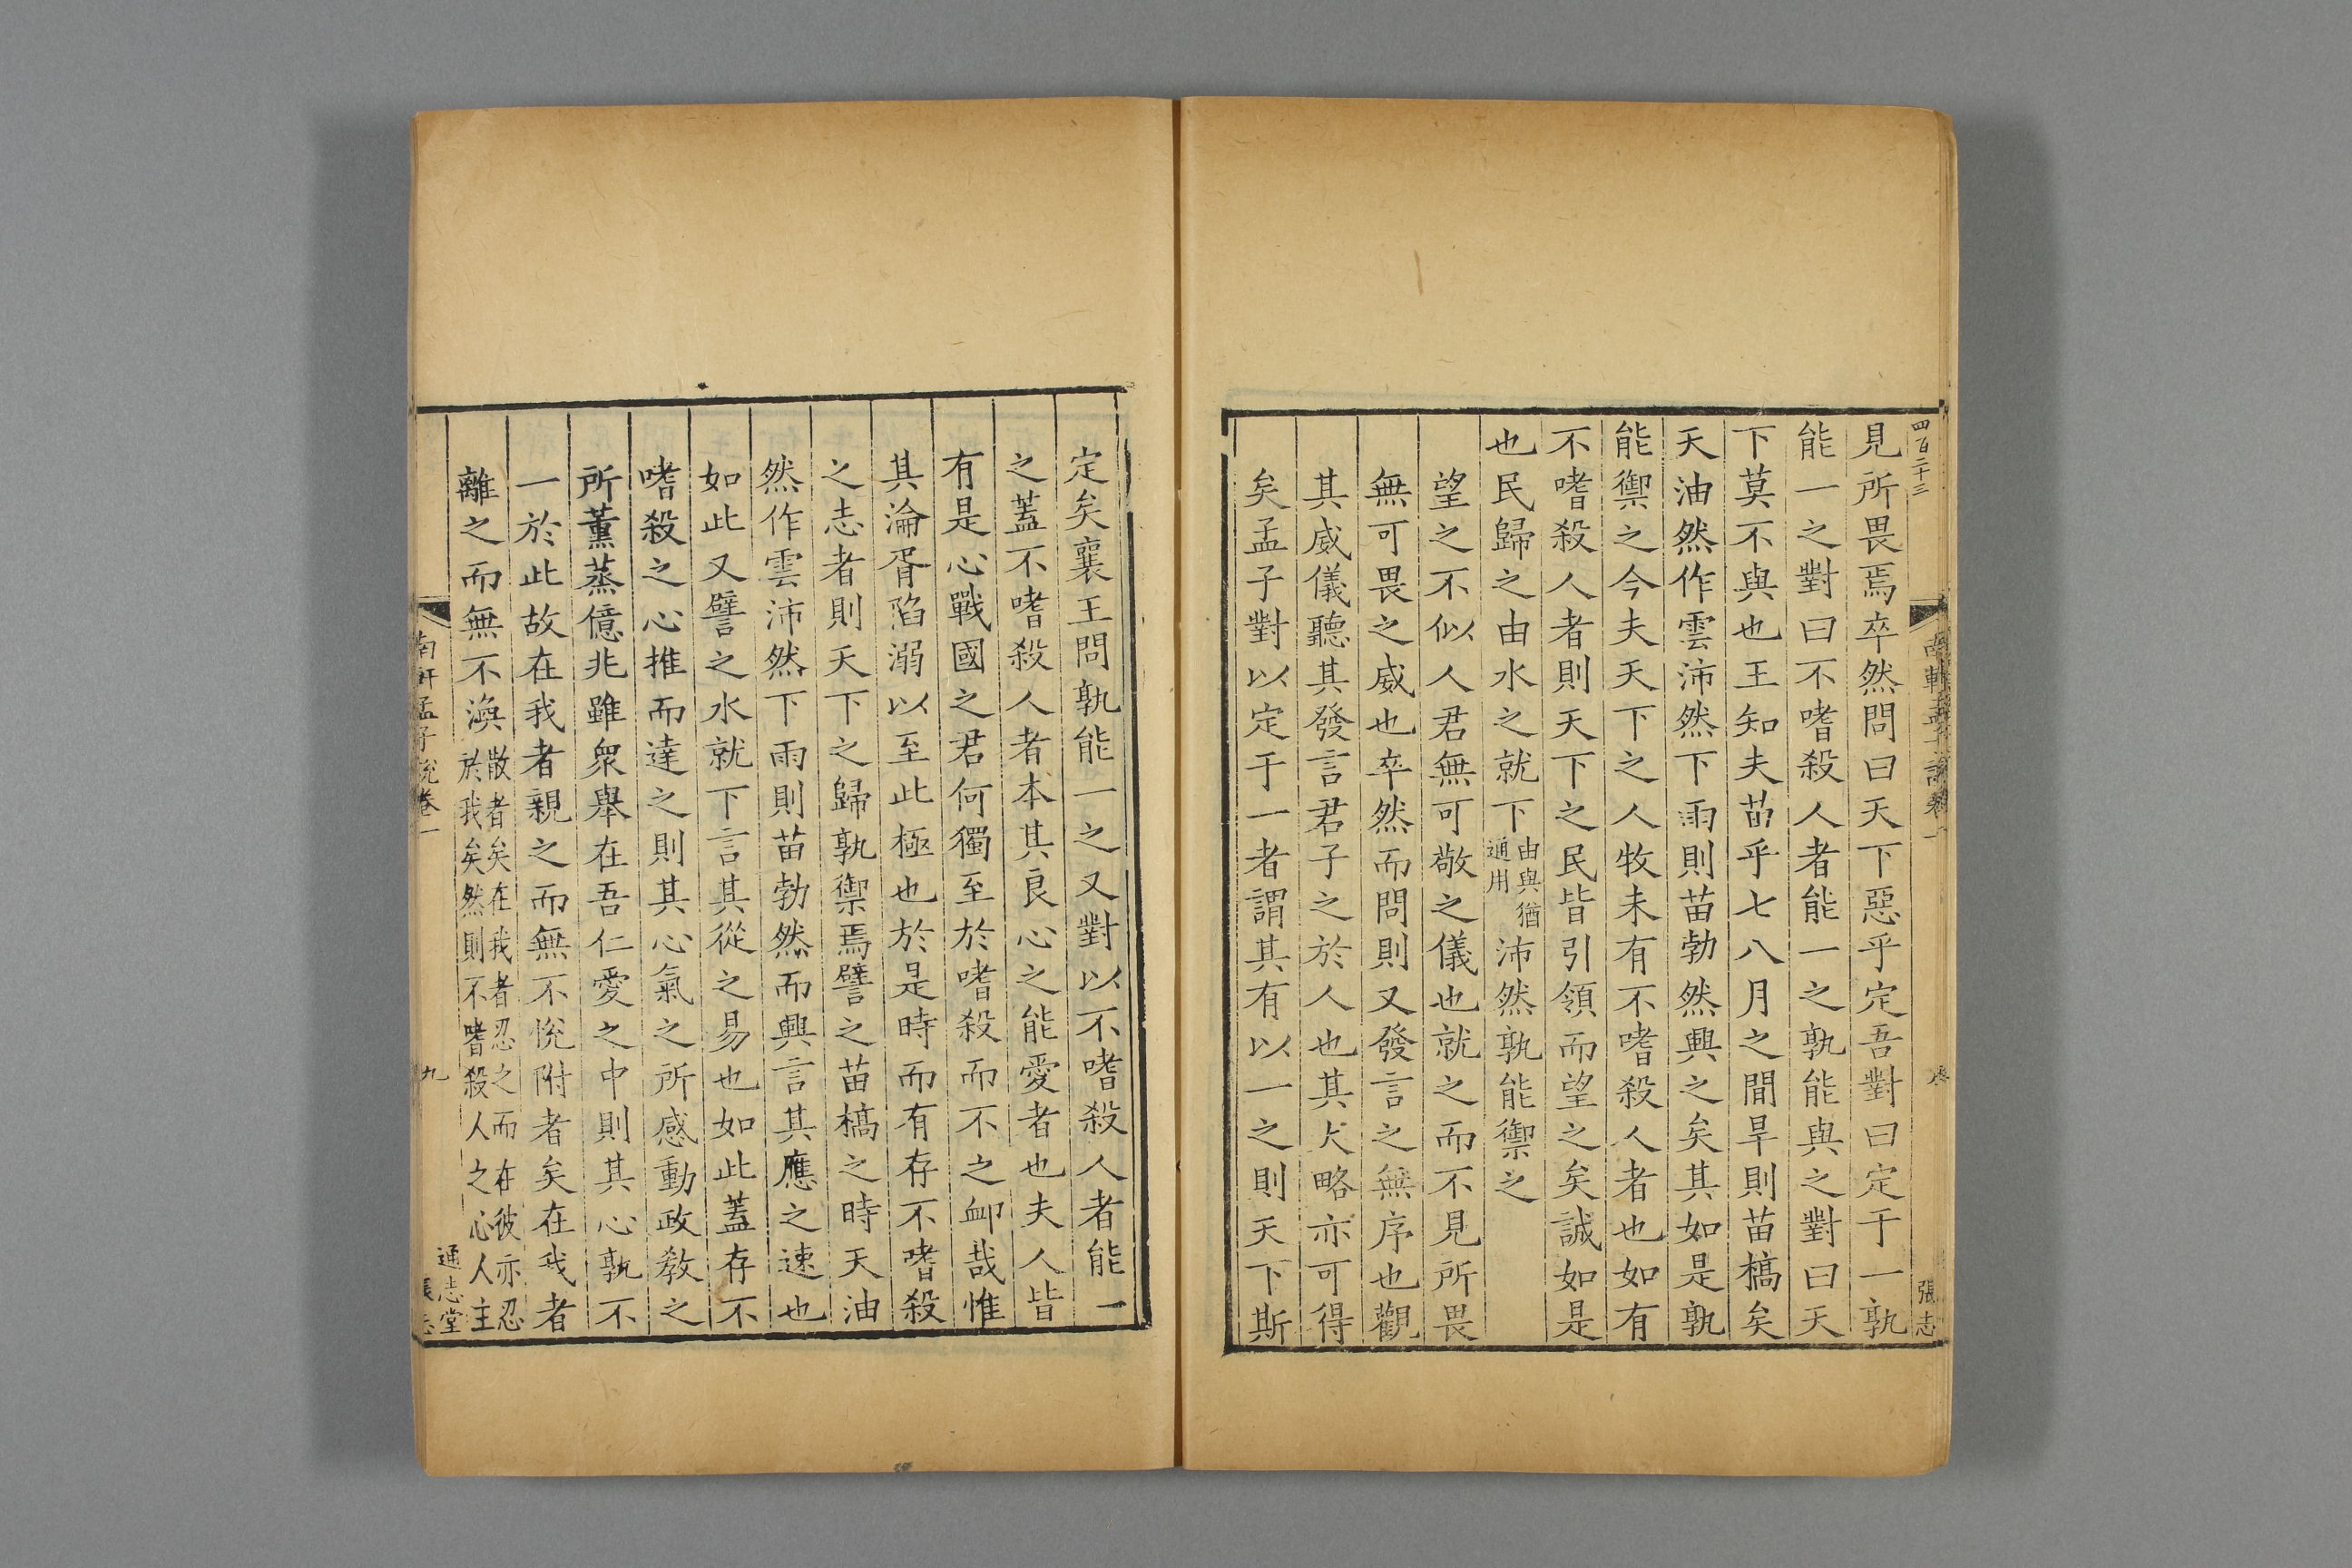 四百二十三
張志
見所畏焉卒然問曰天下惡乎定吾對曰定于一孰
能一之對曰不嗜殺人者能一之孰能與之對曰天
下莫不與也王知夫苗乎七八月之間旱則苗槁矣
天油然作雲沛然下雨則苗勃然興之矣其如是孰
能禦之今夫天下之人牧未有不嗜殺人者也如有
不嗜殺人者則天下之民皆引領而望之矣誠如是
也民歸之由水之就下由與猶通用沛然孰能禦之
望之不似人君無可敬之儀也就之而不見所畏
無可畏之威也卒然而問則又發言之無序也觀
其威儀聽其發言君子之於人也其大略亦可得
矣孟子對以定于一者謂其有以一之則天下斯
定矣襄王問孰能一之又對以不嗜殺人者能一
之蓋不嗜殺人者本其良心之能愛者也夫人皆
有是心戰國之君何獨至於嗜殺而不之卹哉惟
其淪胥陷溺以至此極也於是時而有存不嗜殺
之志者則天下之歸孰禦焉譬之苗槁之時天油
然作雲沛然下雨則苗勃然而興言其應之速也
如此又譬之水就下言其從之易也如此蓋存不
嗜殺之心推而達之則其心氣之所感動政教之
所薰蒸億兆雖衆舉在吾仁愛之中則其心孰不
一於此故在我者親之而無不悅附者矣在我者
離之而無不渙散者矣在我者忍之而在彼亦忍於我矣然則不嗜殺人之心人主
南軒孟子說卷一
九
通志堂